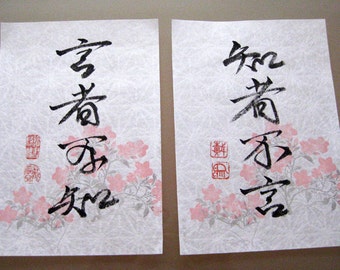 知者不言
言者不知